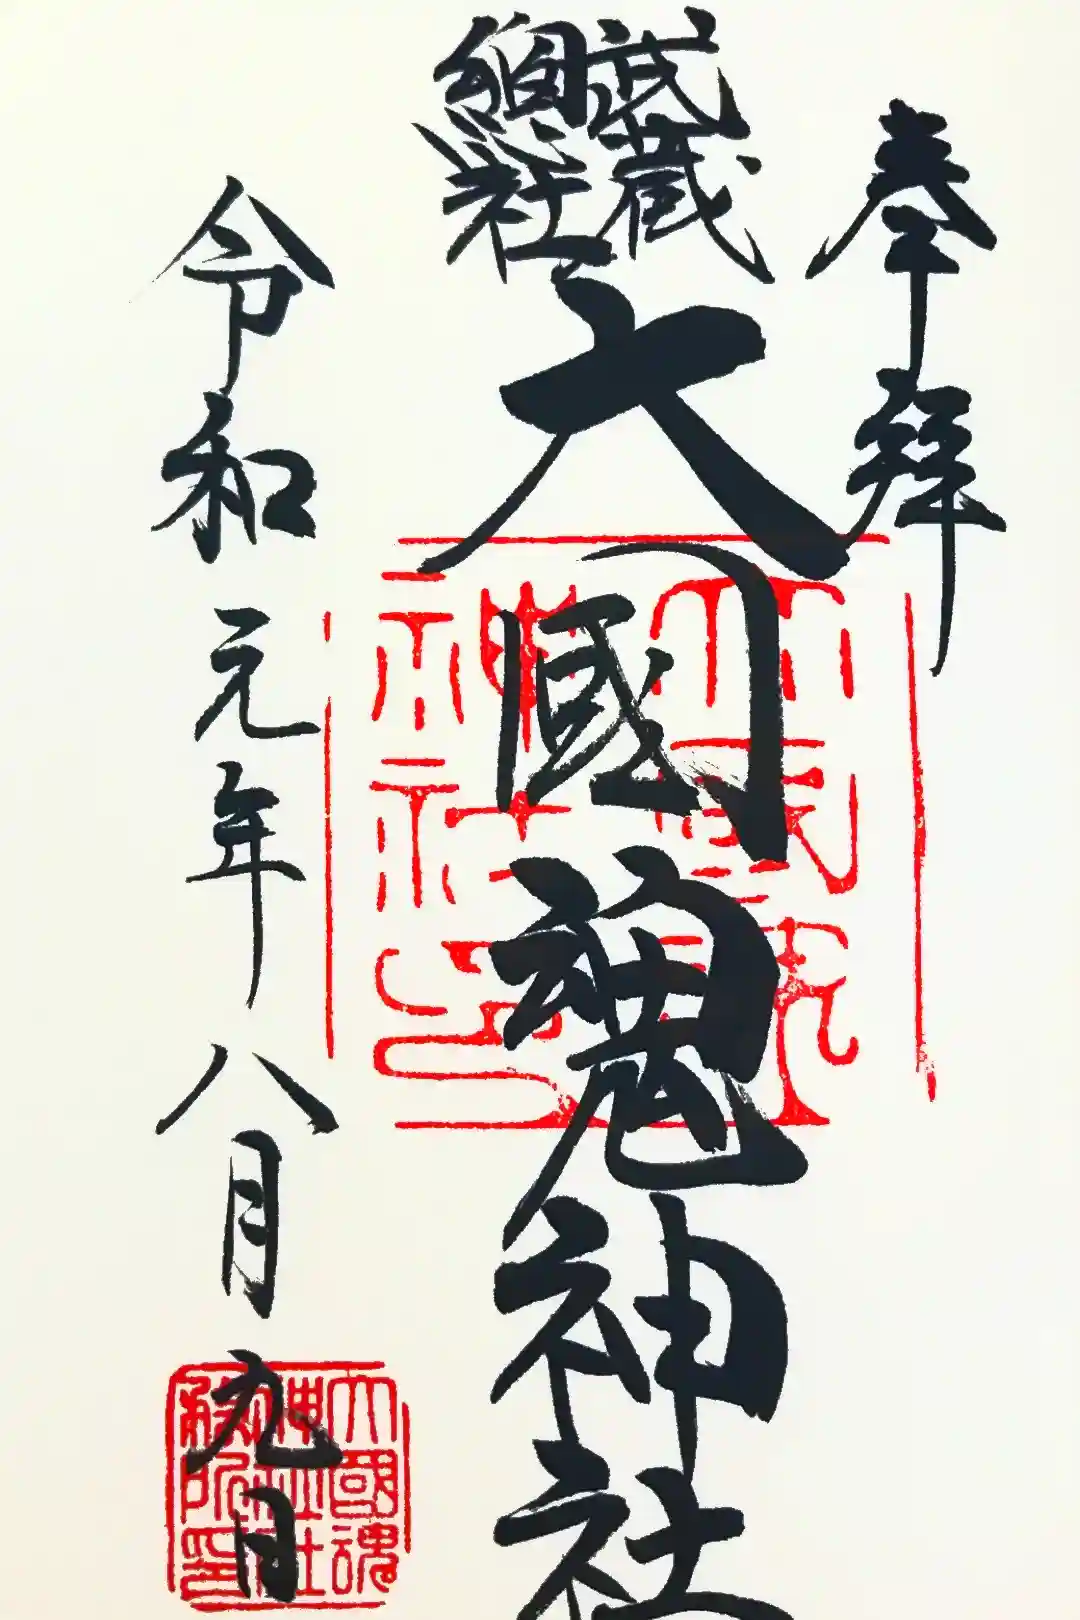 奉拜
武蔵
總社
大國魂神社
令和元年八月九日
大國魂
神社之
印
大國魂
神社
務所印